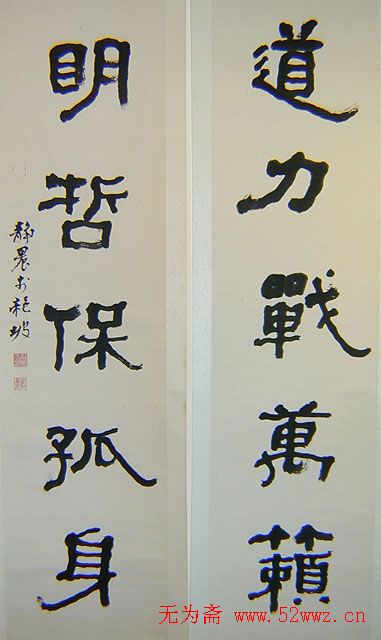 道力戰萬籟
明哲保孤身
靜農於龍坡
无为斋 www.52wwz.cn